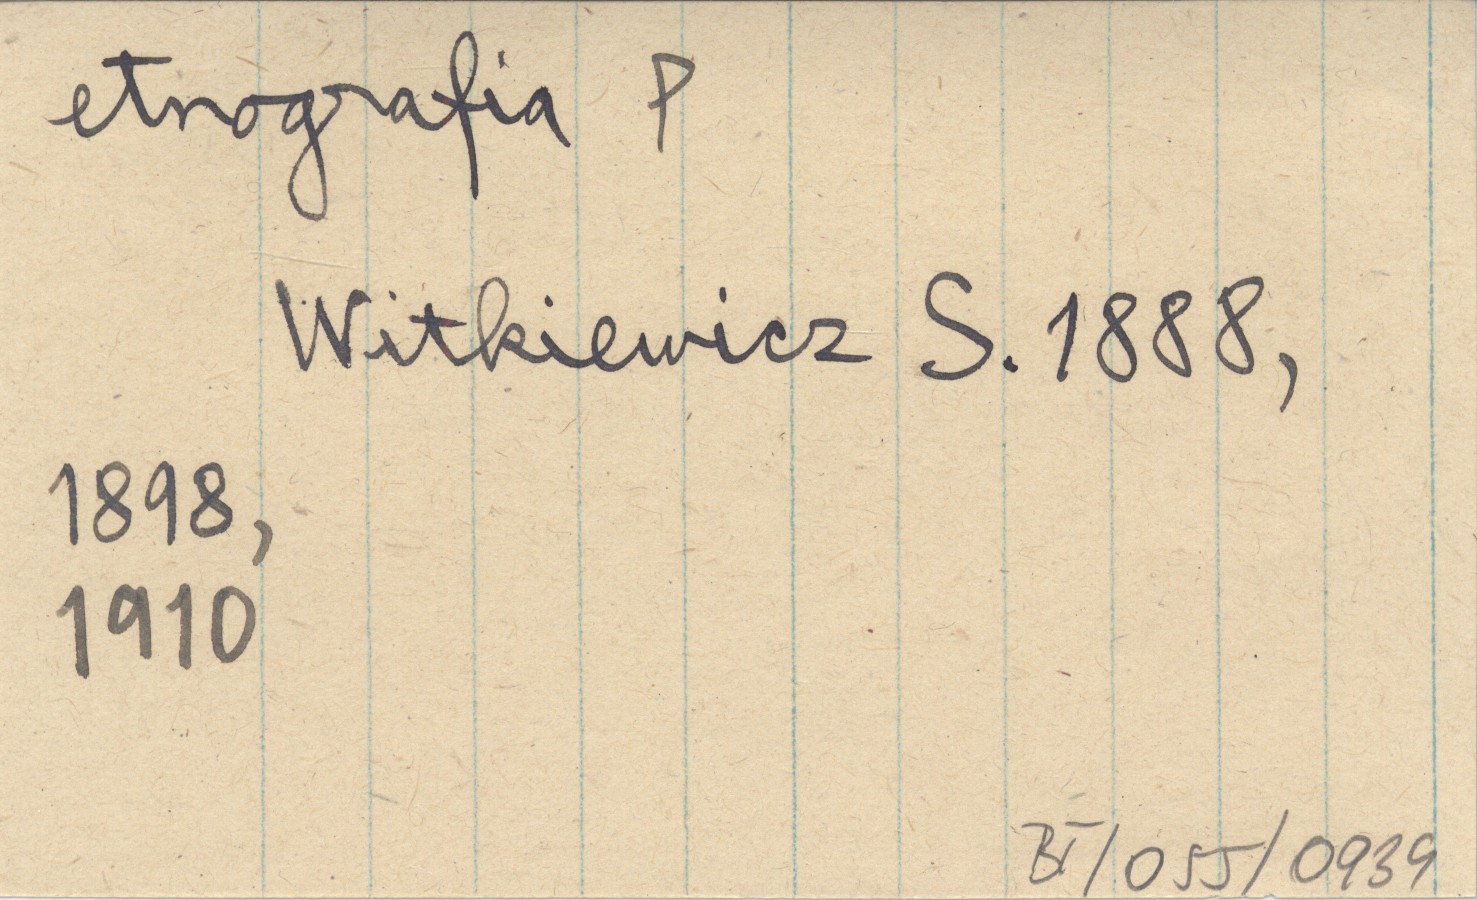 etnografia P
Witkiewicz S. 1888,
1898,
1910
BŁ/055/0939